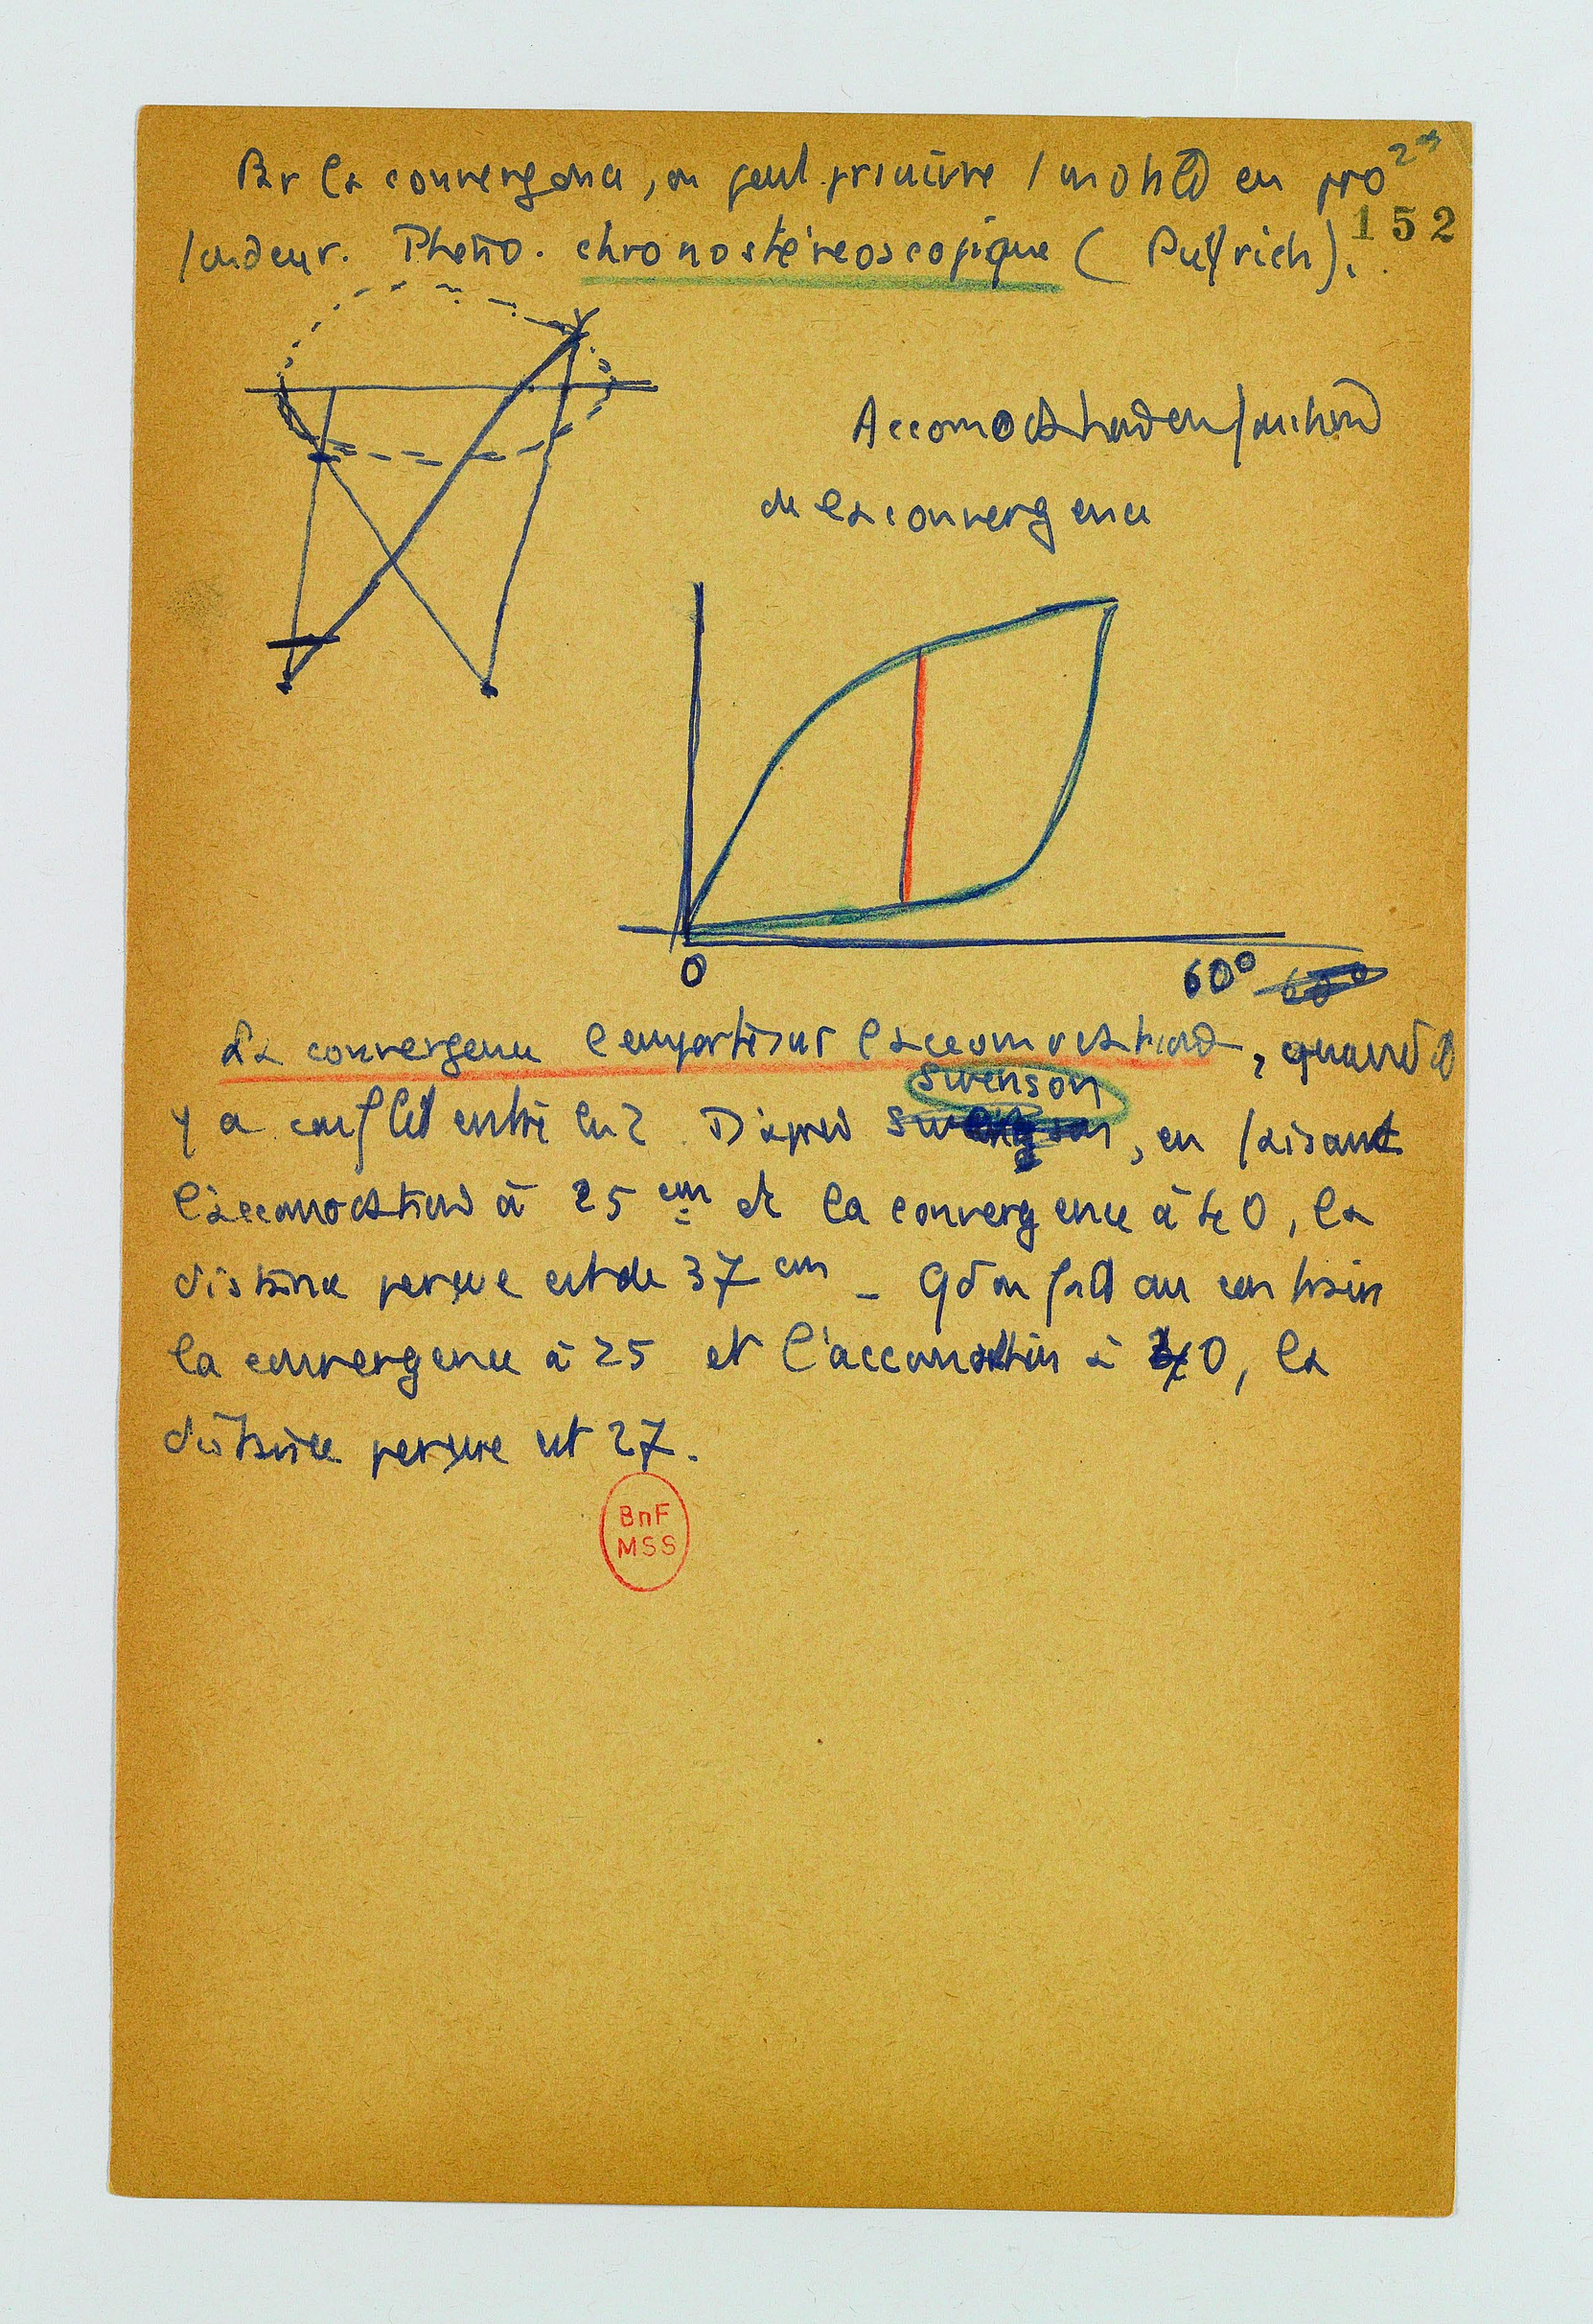 Par la convergence, on peut poursuivre 1 mobile en pro
152
fondeur. Phéno. chronostéréoscopique (Pulfrich).
Accomodation en fonction
de la convergence
0 60° 60°
La convergence l'emporte sur l'accomodation, quand il
Swenson
y a conflit entre les 2. D'après , en faisant
l'accomodation à 25 cm et la convergence à 40, la
distance perçue est de 37 cm - Qd on fait au contraire
la convergence à 25 et l'accomodation à 40, la
distance perçue est 27.
BnF
MSS